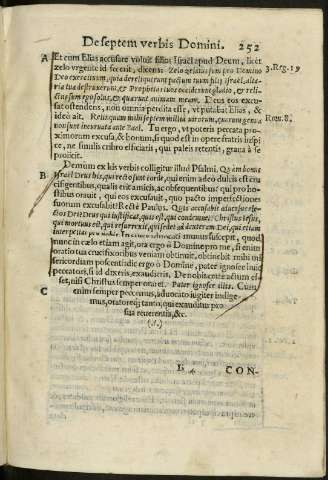 De septem verbis Domini. 252
A Et cum Elias accusare voluit filios Israel apud Deum, licet
zelo vrgente id fecerit, dicens: Zelo zelatus sum pro Domino
Deo exercituum, quia dereliquerunt pactum tuum filij Israel, alta-
ria tua destruxerunt, & Prophetas tuos occiderunt gladio, & reli-
ctus sum ego solus, & quærunt animam meam. Deus eos excu-
sat ostendens, non omnia perdita esse, vt putabat Elias, &
ideò ait. Reliqui mihi septem millia virorum, quorum genua
non sunt incuruata ante Baal. Tu ergo, vt poteris peccata pro-
ximorum excusa, & bonum, si quod est in opere fratris inspi-
ce, ne similis cribro efficiaris, qui paleis retentis, grana à se
proijcit.
3. Reg. 19
Rom. 8.
Demum ex his verbis colligitur illud Psalmi. Quam bonus
B Israel Deus his, qui recto sunt corde,
hostibus orauit, qui eos excusauit, quo pacto imperfectiones
suorum excusabit? Rectè Paulus. Quis accusabit aduersus ele-
ctos Dei? Deus qui iustificat, quis est, qui condemnet? Christus Iesus,
qui mortuus est, qui & resurrexit, qui sedet ad dexteram Dei, qui etiam
interpellat pro nobis.
nunc in cælo etiam agit, ora ergo ò Domine pro me, si enim
oratio tua crucifixoribus veniam obtinuit, obtinebit mihi mi-
sericordiam poscenti: dic ergo ò Domine, pater ignosce huic
peccatori, si id dixeris, exaudieris.
set, nisi Christus semper oraret. Pater ignosce illis. Cum
C enim semper peccemus, aduocato iugiter indige-
mus, oratoreq; tanto, qui exauditur pro
sua reuerentia, &c.
(.?.)
CON-